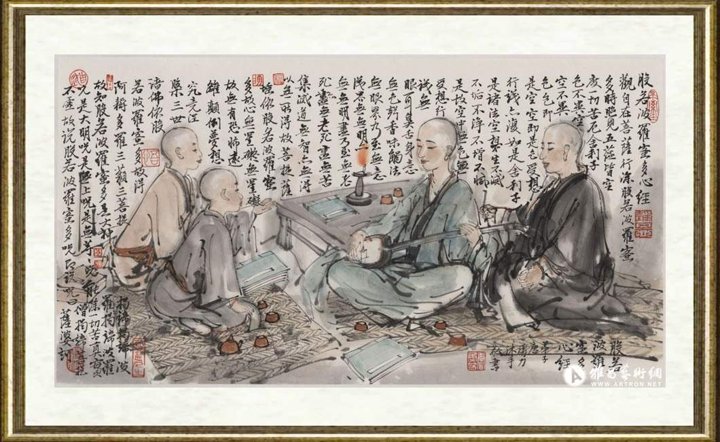 般若波羅蜜多心經
觀自在菩薩行深般若波羅蜜
多時照見五蘊皆空
度一切苦厄舍利子
色不異空
空不異色
色即是空空即是色受想
行識亦復如是舍利子
是諸法空相不生不滅
不垢不淨不增不減
是故空中無色無
受想行
識無
眼耳鼻舌身意
無色聲香味觸法
無眼界乃至無意
識界無無明
亦無無明盡乃至無
老死亦無老死盡無苦
集滅道無智亦無得
以無所得故菩提薩
埵依般若波羅蜜
多故心無罣礙無罣礙
故無有恐怖遠
離顛倒夢想
究竟涅
槃三世
諸佛依般
若波羅蜜多故得
阿耨多羅三藐三菩提
故知般若波羅蜜多是
咒是大明咒是無上咒是無等
不虛故說般若波羅蜜多咒即說咒曰
除一切苦真實
揭諦揭諦波
羅揭諦波羅
僧揭諦菩提
薩婆訶
般若
波羅
蜜多
心經
雅昌藝術網
WWW.ARTRON.NET